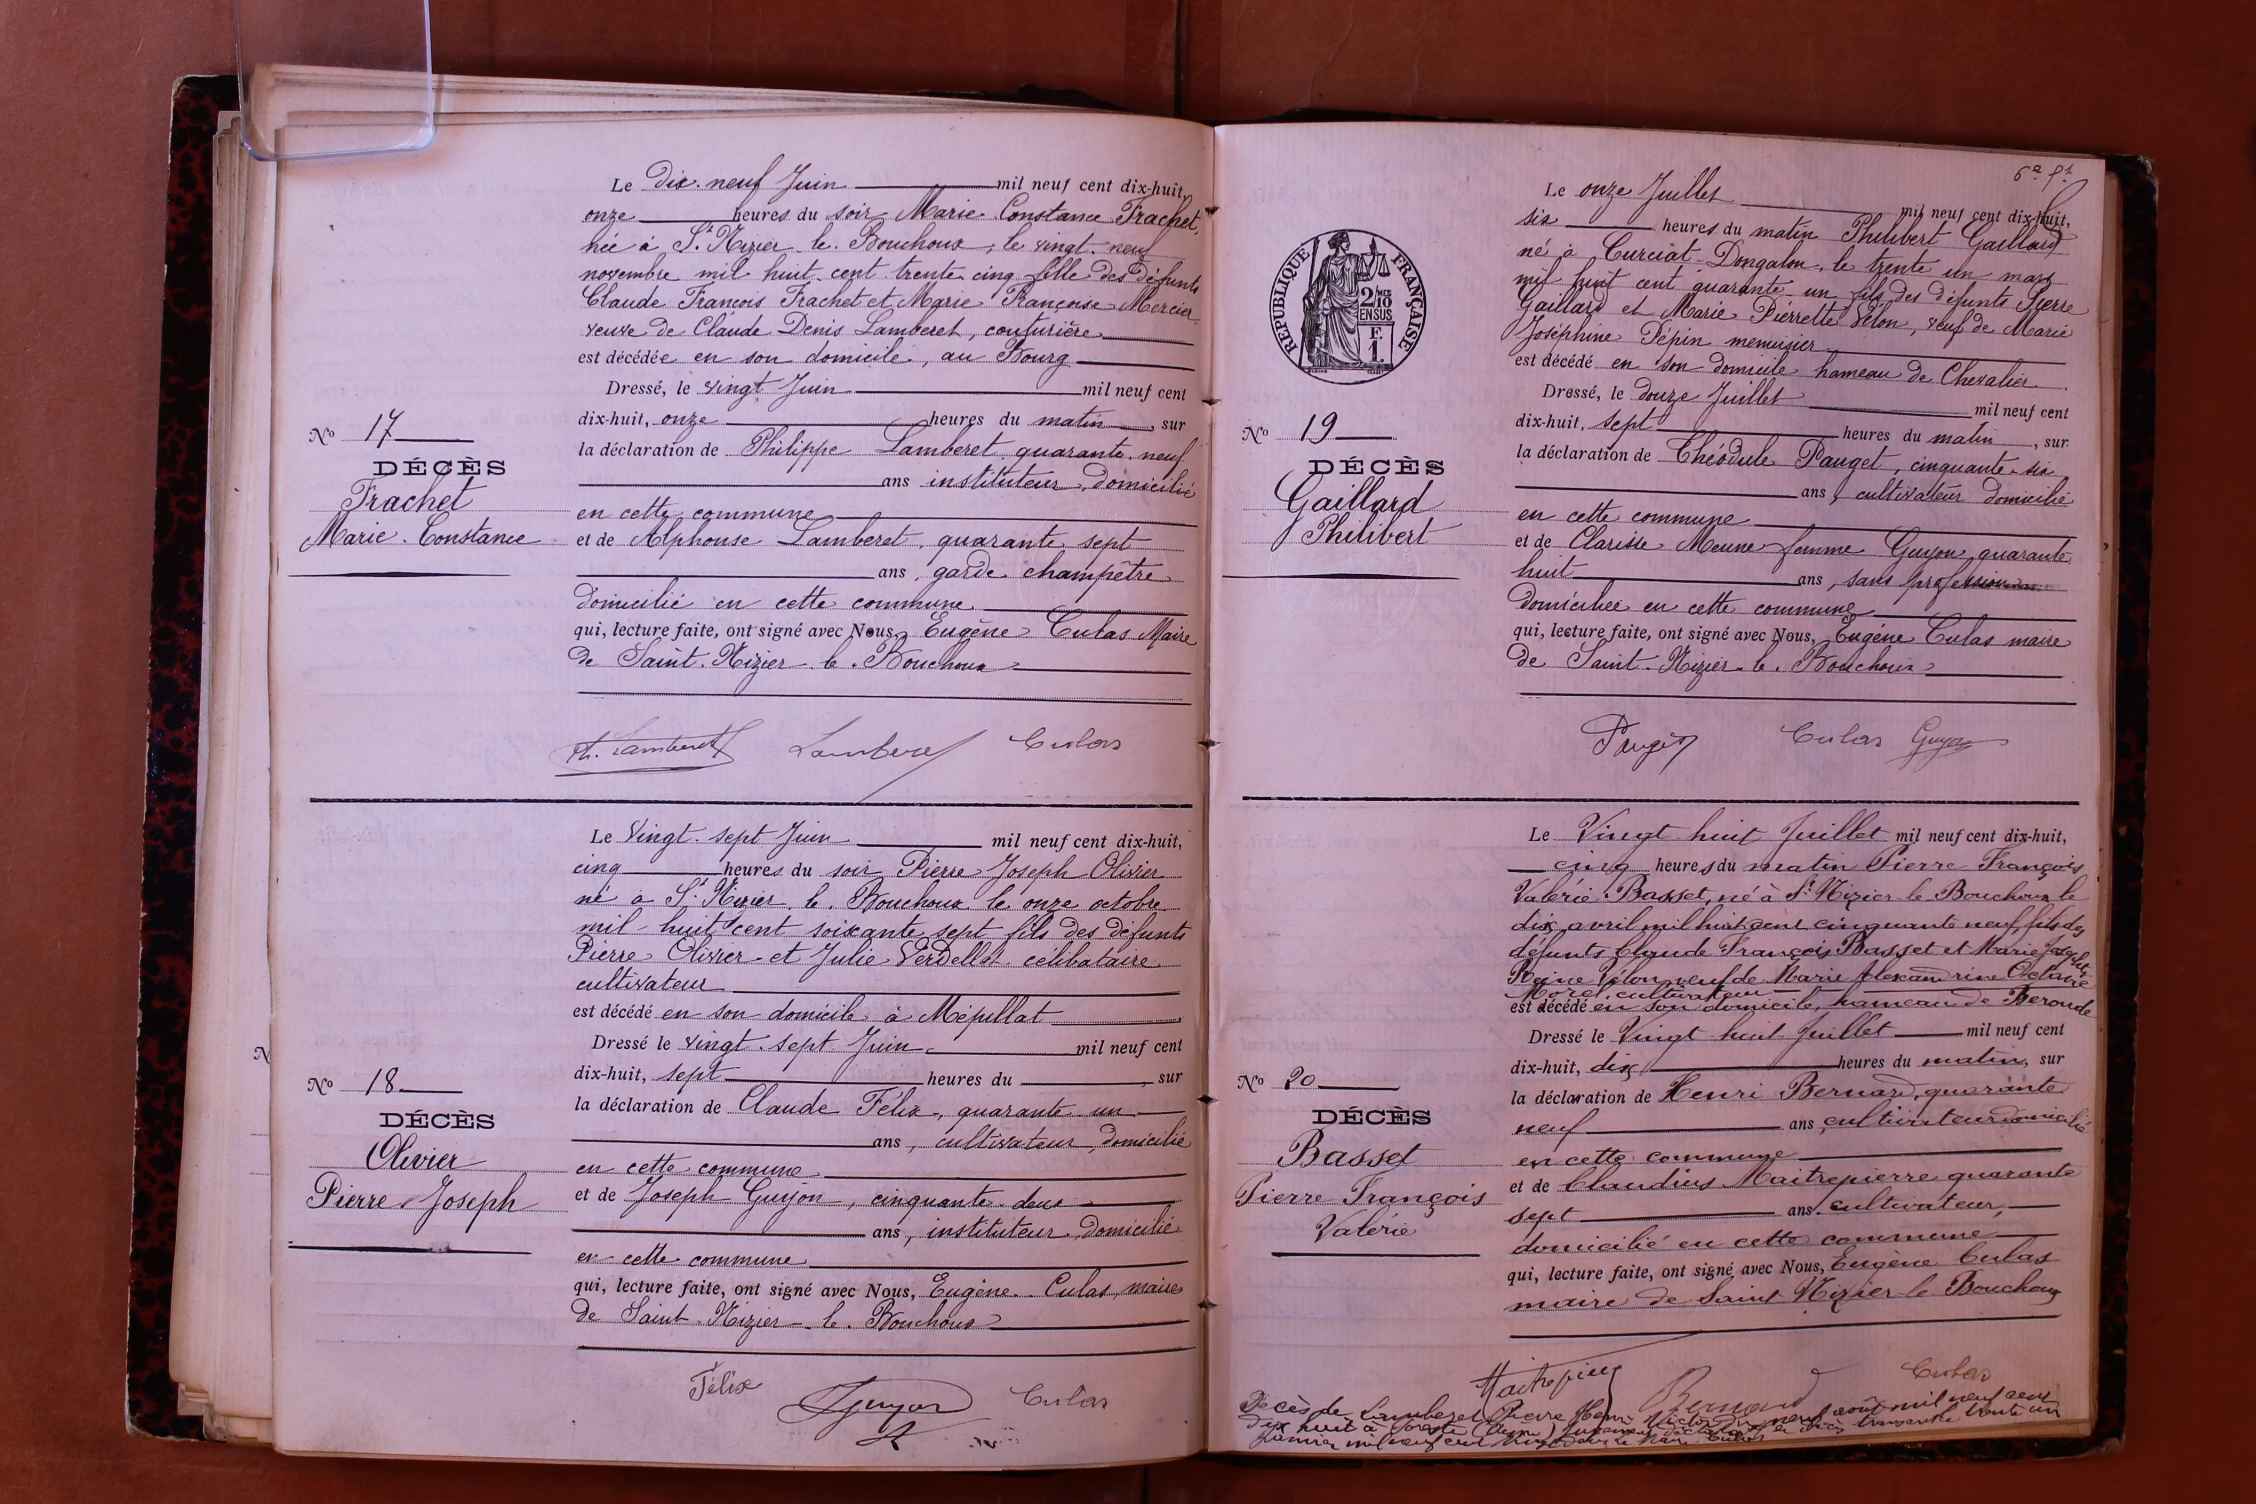 Le dix-neuf Juin mil neuf cent dix-huit,
onze heures du soir Marie-Constance Frachet,
née à St Nizier-le-Bouchoux, le vingt-neuf
novembre mil huit cent trente cinq fille des défunts
Claude François Frachet et Marie Françoise Mercier
veuve de Claude Denis Lamberet, couturière
est décédée en son domicile, au Bourg
Dressé, le vingt Juin mil neuf cent
dix-huit, onze heures du matin, sur
la déclaration de Philippe Lamberet quarante-neuf
ans instituteur, domicilié
en cette commune
et de Alphonse Lamberet, quarante sept
ans, garde champêtre
domicilié en cette commune
qui, lecture faite, ont signé avec Nous, Eugène Culas Maire
de Saint-Nizier-le-Bouchoux
No 17
DÉCÈS
Frachet
Marie-Constance
Ph. Lamberet Lamberet Culas
Le Vingt-sept Juin mil neuf cent dix-huit,
cinq heures du soir Pierre Joseph Olivier
né à St Nizier-le-Bouchoux le onze octobre
mil-huit cent soixante sept fils des défunts
Pierre Olivier et Julie Verdellet célibataire
cultivateur
est décédé en son domicile à Mépillat
Dressé le vingt-sept Juin mil neuf cent
dix-huit, sept heures du , sur
la déclaration de Claude Félix, quarante-un
ans, cultivateur, domicilié
en cette commune
et de Joseph Guyon, cinquante-deux
ans, instituteur, domicilié
en cette commune
qui, lecture faite, ont signé avec Nous, Eugène Culas, maire
de Saint-Nizier-le-Bouchoux
No 18
DÉCÈS
Olivier
Pierre-Joseph
Félix Guyon Culas
RÉPUBLIQUE FRANÇAISE
2/10 MES
EN SUS
F.
1.
Le onze Juillet mil neuf cent dix-huit,
six heures du matin Philibert Gaillard
né à Curciat-Dongalon, le trente un mars
mil huit cent quarante-un fils des défunts Pierre
Gaillard et Marie Pierrette Vélon, veuf de Marie
Joséphine Pépin menuisier
est décédé en son domicile hameau de Chevalier
Dressé, le douze Juillet mil neuf cent
dix-huit, sept heures du matin, sur
la déclaration de Théodule Pauget, cinquante-six
ans, cultivateur domicilié
en cette commune
et de Clarisse Meune femme Guyon quarante
huit ans, sans profession
domiciliée en cette commune
qui, lecture faite, ont signé avec Nous, Eugène Culas maire
de Saint-Nizier-le-Bouchoux
No 19
DÉCÈS
Gaillard
Philibert
Pauget Culas Guyon
Le Vingt huit Juillet mil neuf cent dix-huit,
cinq heures du matin Pierre François
Valérie Basset, né à St Nizier-le-Bouchoux le
dix avril mil huit cent cinquante neuf, fils des
défunts Claude François Basset et Marie Josephte
Reine Vélon, veuf de Marie Alexandrine Octavie
Morel, cultivateur
est décédé en son domicile, hameau de Beroude
Dressé le Vingt huit Juillet mil neuf cent
dix-huit, dix heures du matin, sur
la déclaration de Henri Bernard, quarante
neuf ans, cultivateur domicilié
en cette commune
et de Claudius Maitrepierre quarante
sept ans, cultivateur,
domicilié en cette commune
qui, lecture faite, ont signé avec Nous, Eugène Culas
maire de Saint Nizier-le Bouchoux
No 20
DÉCÈS
Basset
Pierre François
Valérie
Maitrepierre Bernard Culas
Décès de Lamberet Pierre Henri Victor du neuf août mil neuf cent
dix huit à transcrit le trente un